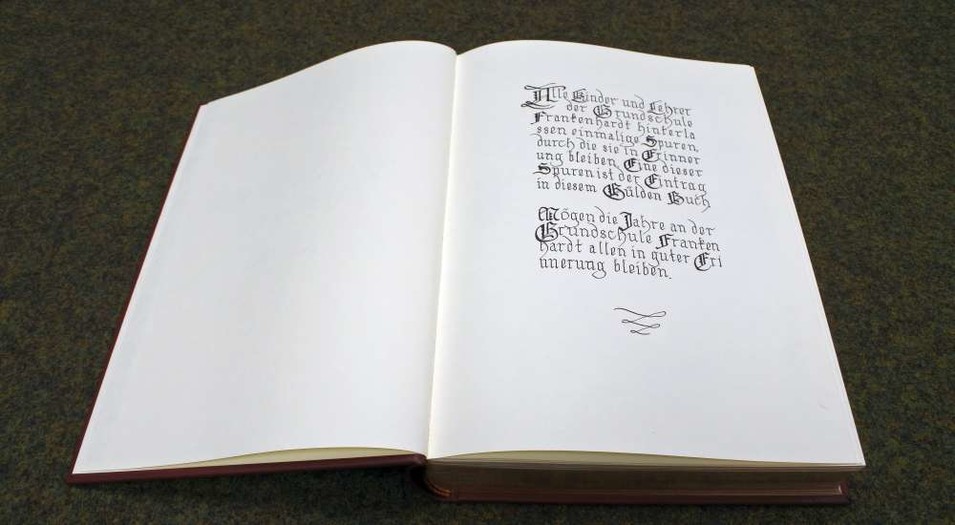 Alle Kinder und Lehrer
der Grundschule
Frankenhardt hinterla
ssen einmalige Spuren,
durch die sie in Erinner
ung bleiben. Eine dieser
Spuren ist der Eintrag
in diesem Gülden Buch
Mögen die Jahre an der
Grundschule Franken
hardt allen in guter Eri
nnerung bleiben.